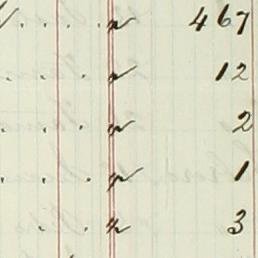 .... " 467
.... " 12
... " 2
... " 1
.. " 3